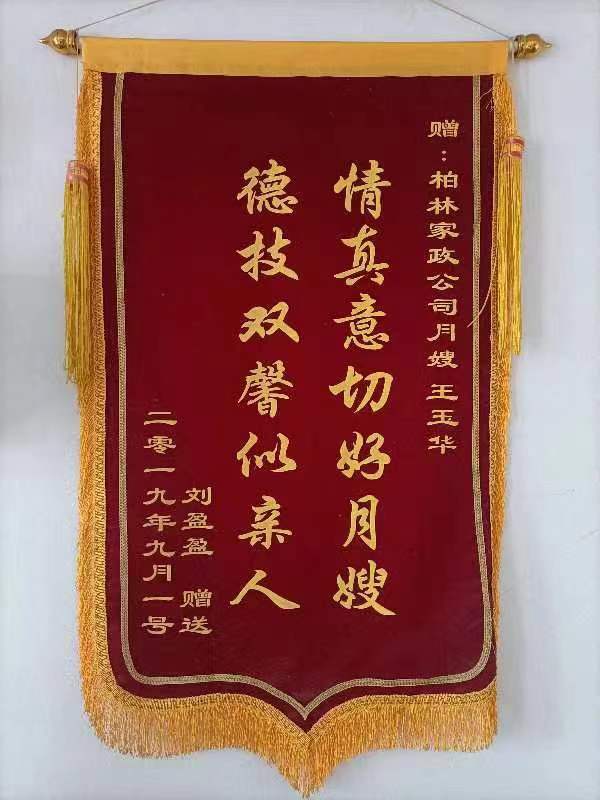 赠：柏林家政公司月嫂 王玉华
情真意切好月嫂
德技双馨似亲人
刘盈盈 赠送
二零一九年九月一号